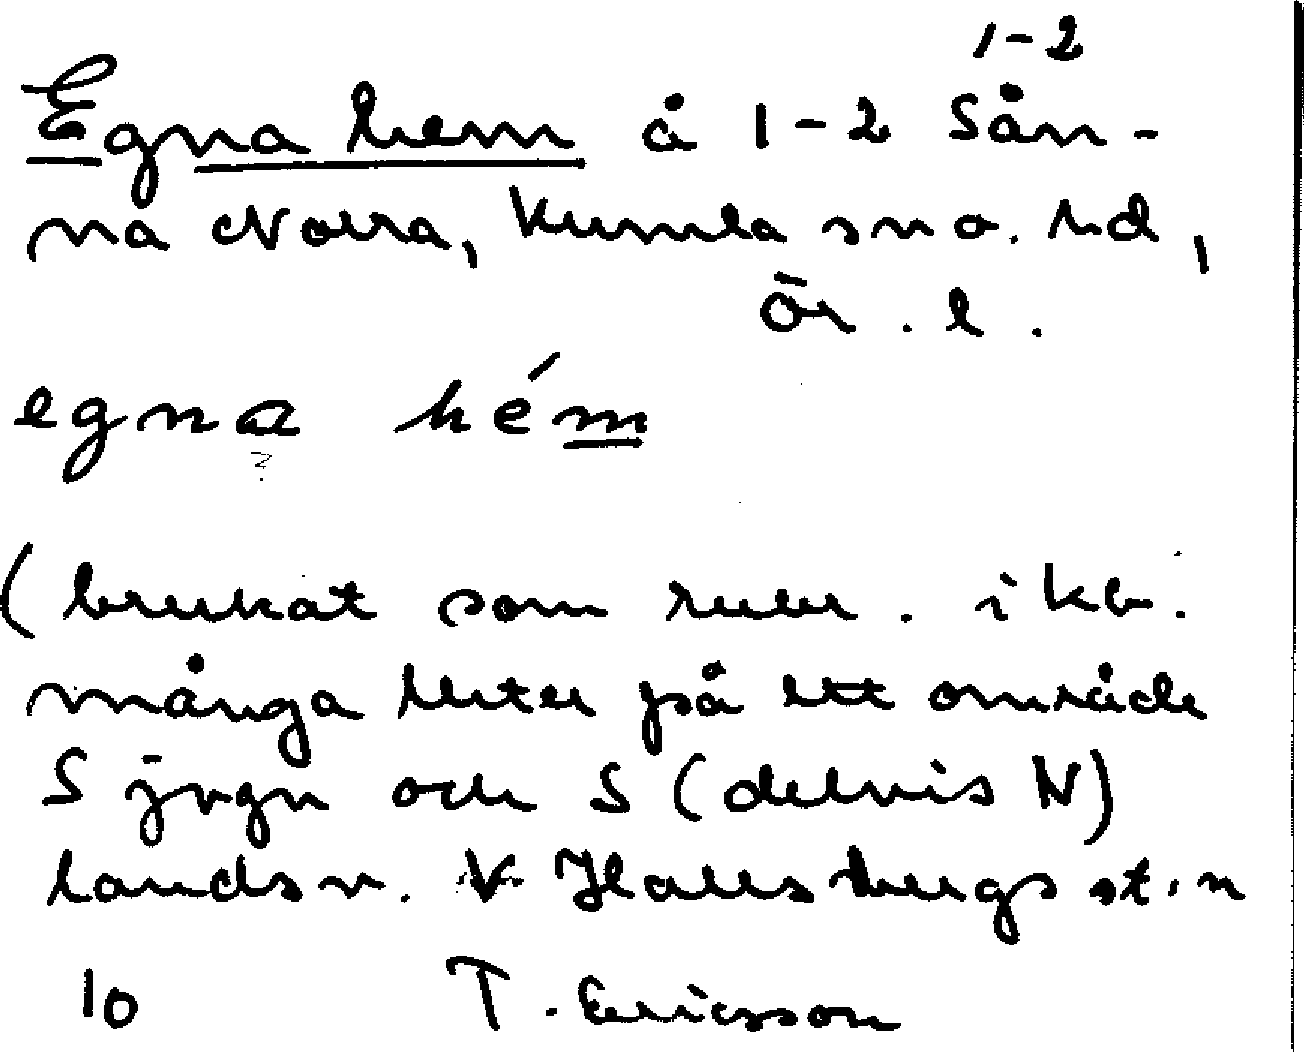 1-2
Egna hem å 1-2 Sån-
na Norra, Kumla sn o. hd,
Ör. l.
egna hém
?
(brukat som
många på ett område
S jvgn och S (delvis N)
landsv. V Hallsbergs st.n
10 T. Ericsson